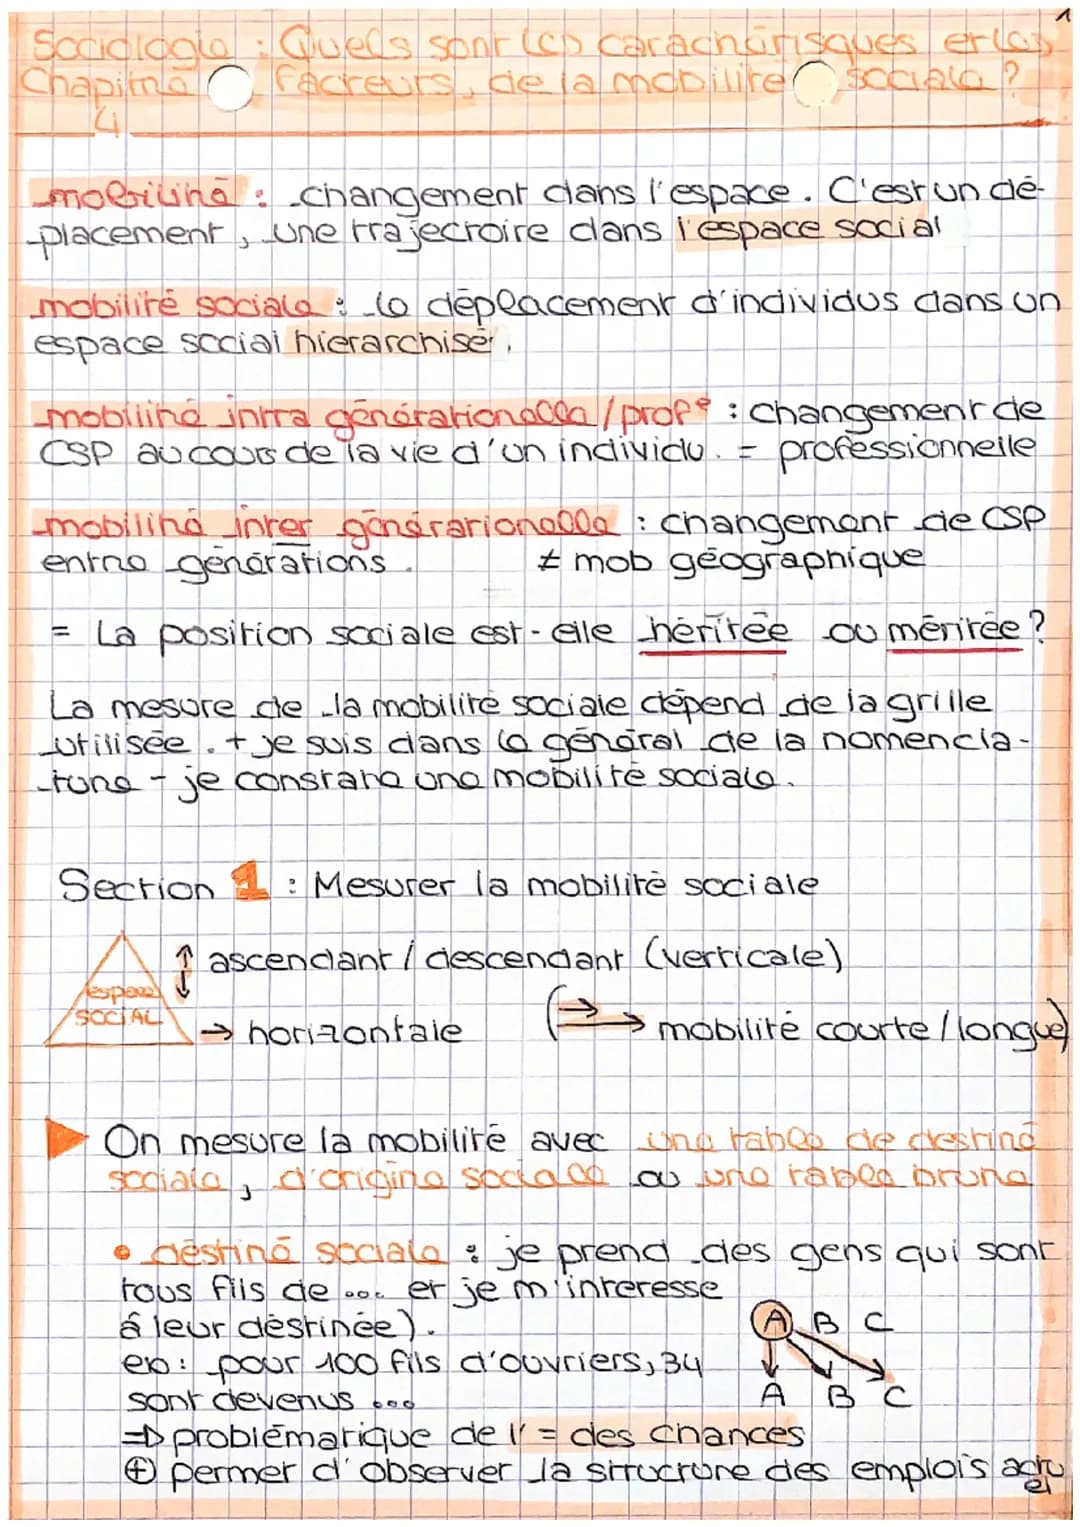 1
Sociologie : Quels sont les caractéristiques et les
Chapitre facteurs, de la mobilité sociale ?
4
mobilité : changement dans l'espace. C'est un dé-
placement, une trajectoire dans l'espace social
mobilité sociale : le déplacement d'individus dans un
espace social hierarchisé.
mobilité intra générationelle / prof° : changement de
CSP au cours de la vie d'un individu. = professionnelle
mobilité inter générationelle : changement de CSP
entre générations. ≠ mob géographique
= La position sociale est-elle héritée ou méritée ?
La mesure de la mobilité sociale dépend de la grille
utilisée. + je suis dans le général de la nomencla-
ture - je constate une mobilité sociale.
Section 1 : Mesurer la mobilité sociale
↑↓ ascendant / descendant (verticale)
espace
SOCIAL
→ horizontale (→→ mobilité courte / longue)
On mesure la mobilité avec une table de destiné
sociale, d'origine sociale ou une table brune
• déstiné sociale : je prend des gens qui sont
tous fils de ... et je m'interesse
à leur déstinée).
A B C
ex : pour 100 fils d'ouvriers, 34
sont devenus ...
A B C
⇒ problématique de l' = des chances
⊕ permet d'observer la structure des emplois actu
el